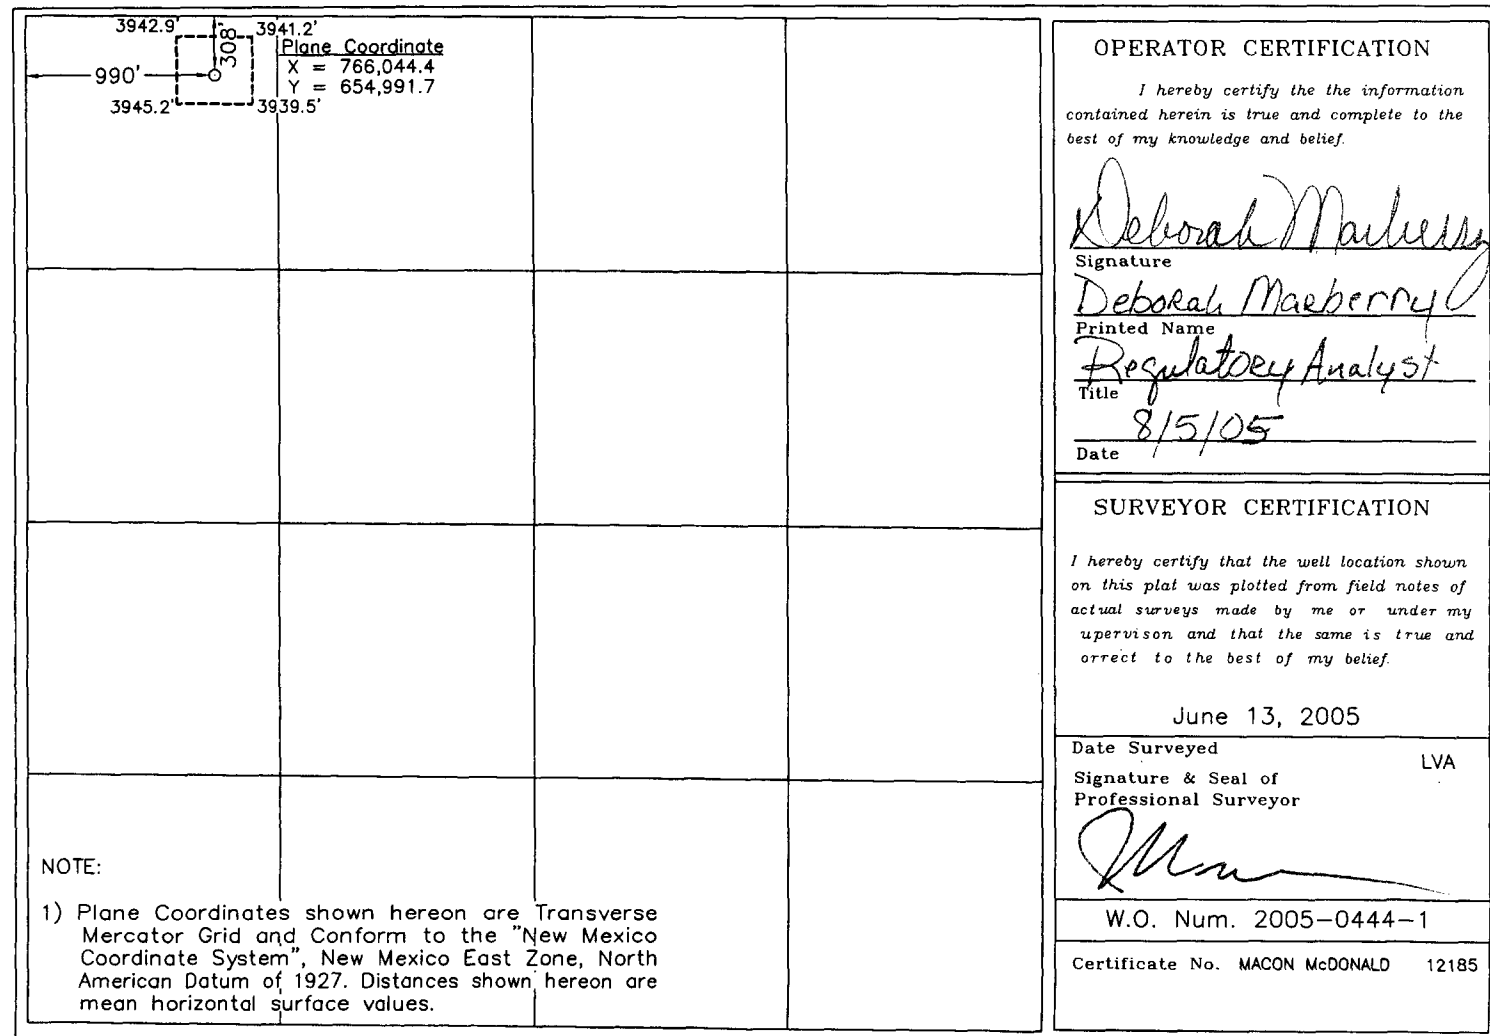 3942.9'
308'
3941.2'
Plane Coordinate
X = 766,044.4
Y = 654,991.7
990'
3945.2'
3939.5'
NOTE:
1) Plane Coordinates shown hereon are Transverse
Mercator Grid and Conform to the "New Mexico
Coordinate System", New Mexico East Zone, North
American Datum of 1927. Distances shown hereon are
mean horizontal surface values.
OPERATOR CERTIFICATION
I hereby certify the the information
contained herein is true and complete to the
best of my knowledge and belief.
Deborah Marberry
Signature
Deborah Marberry
Printed Name
Regulatory Analyst
Title
8/5/05
Date
SURVEYOR CERTIFICATION
I hereby certify that the well location shown
on this plat was plotted from field notes of
actual surveys made by me or under my
upervison and that the same is true and
orrect to the best of my belief.
June 13, 2005
Date Surveyed
LVA
Signature & Seal of
Professional Surveyor
W.O. Num. 2005-0444-1
Certificate No. MACON McDONALD 12185